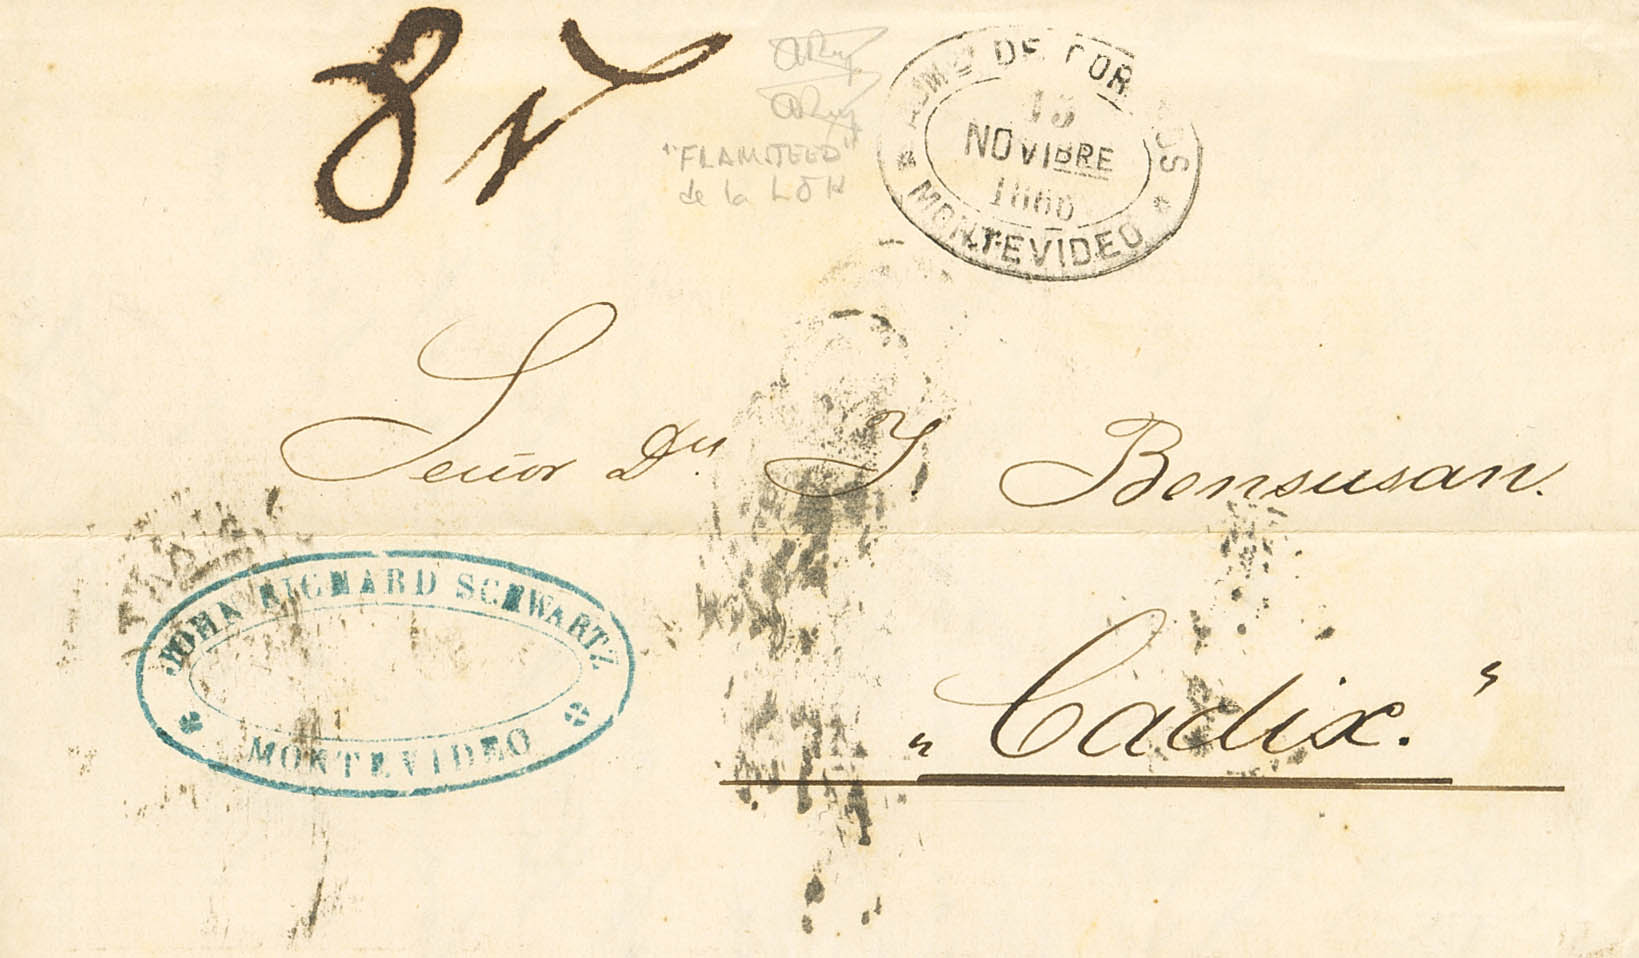 8 r
"FLAMSTEED"
de la LÖH
ADMON DE CORREOS
15
NOVIBRE
1866
* MONTEVIDEO *
Señor Dn. Y. Bensusan.
JOHN RICHARD SCHWARTZ
MONTEVIDEO
"Cadix."